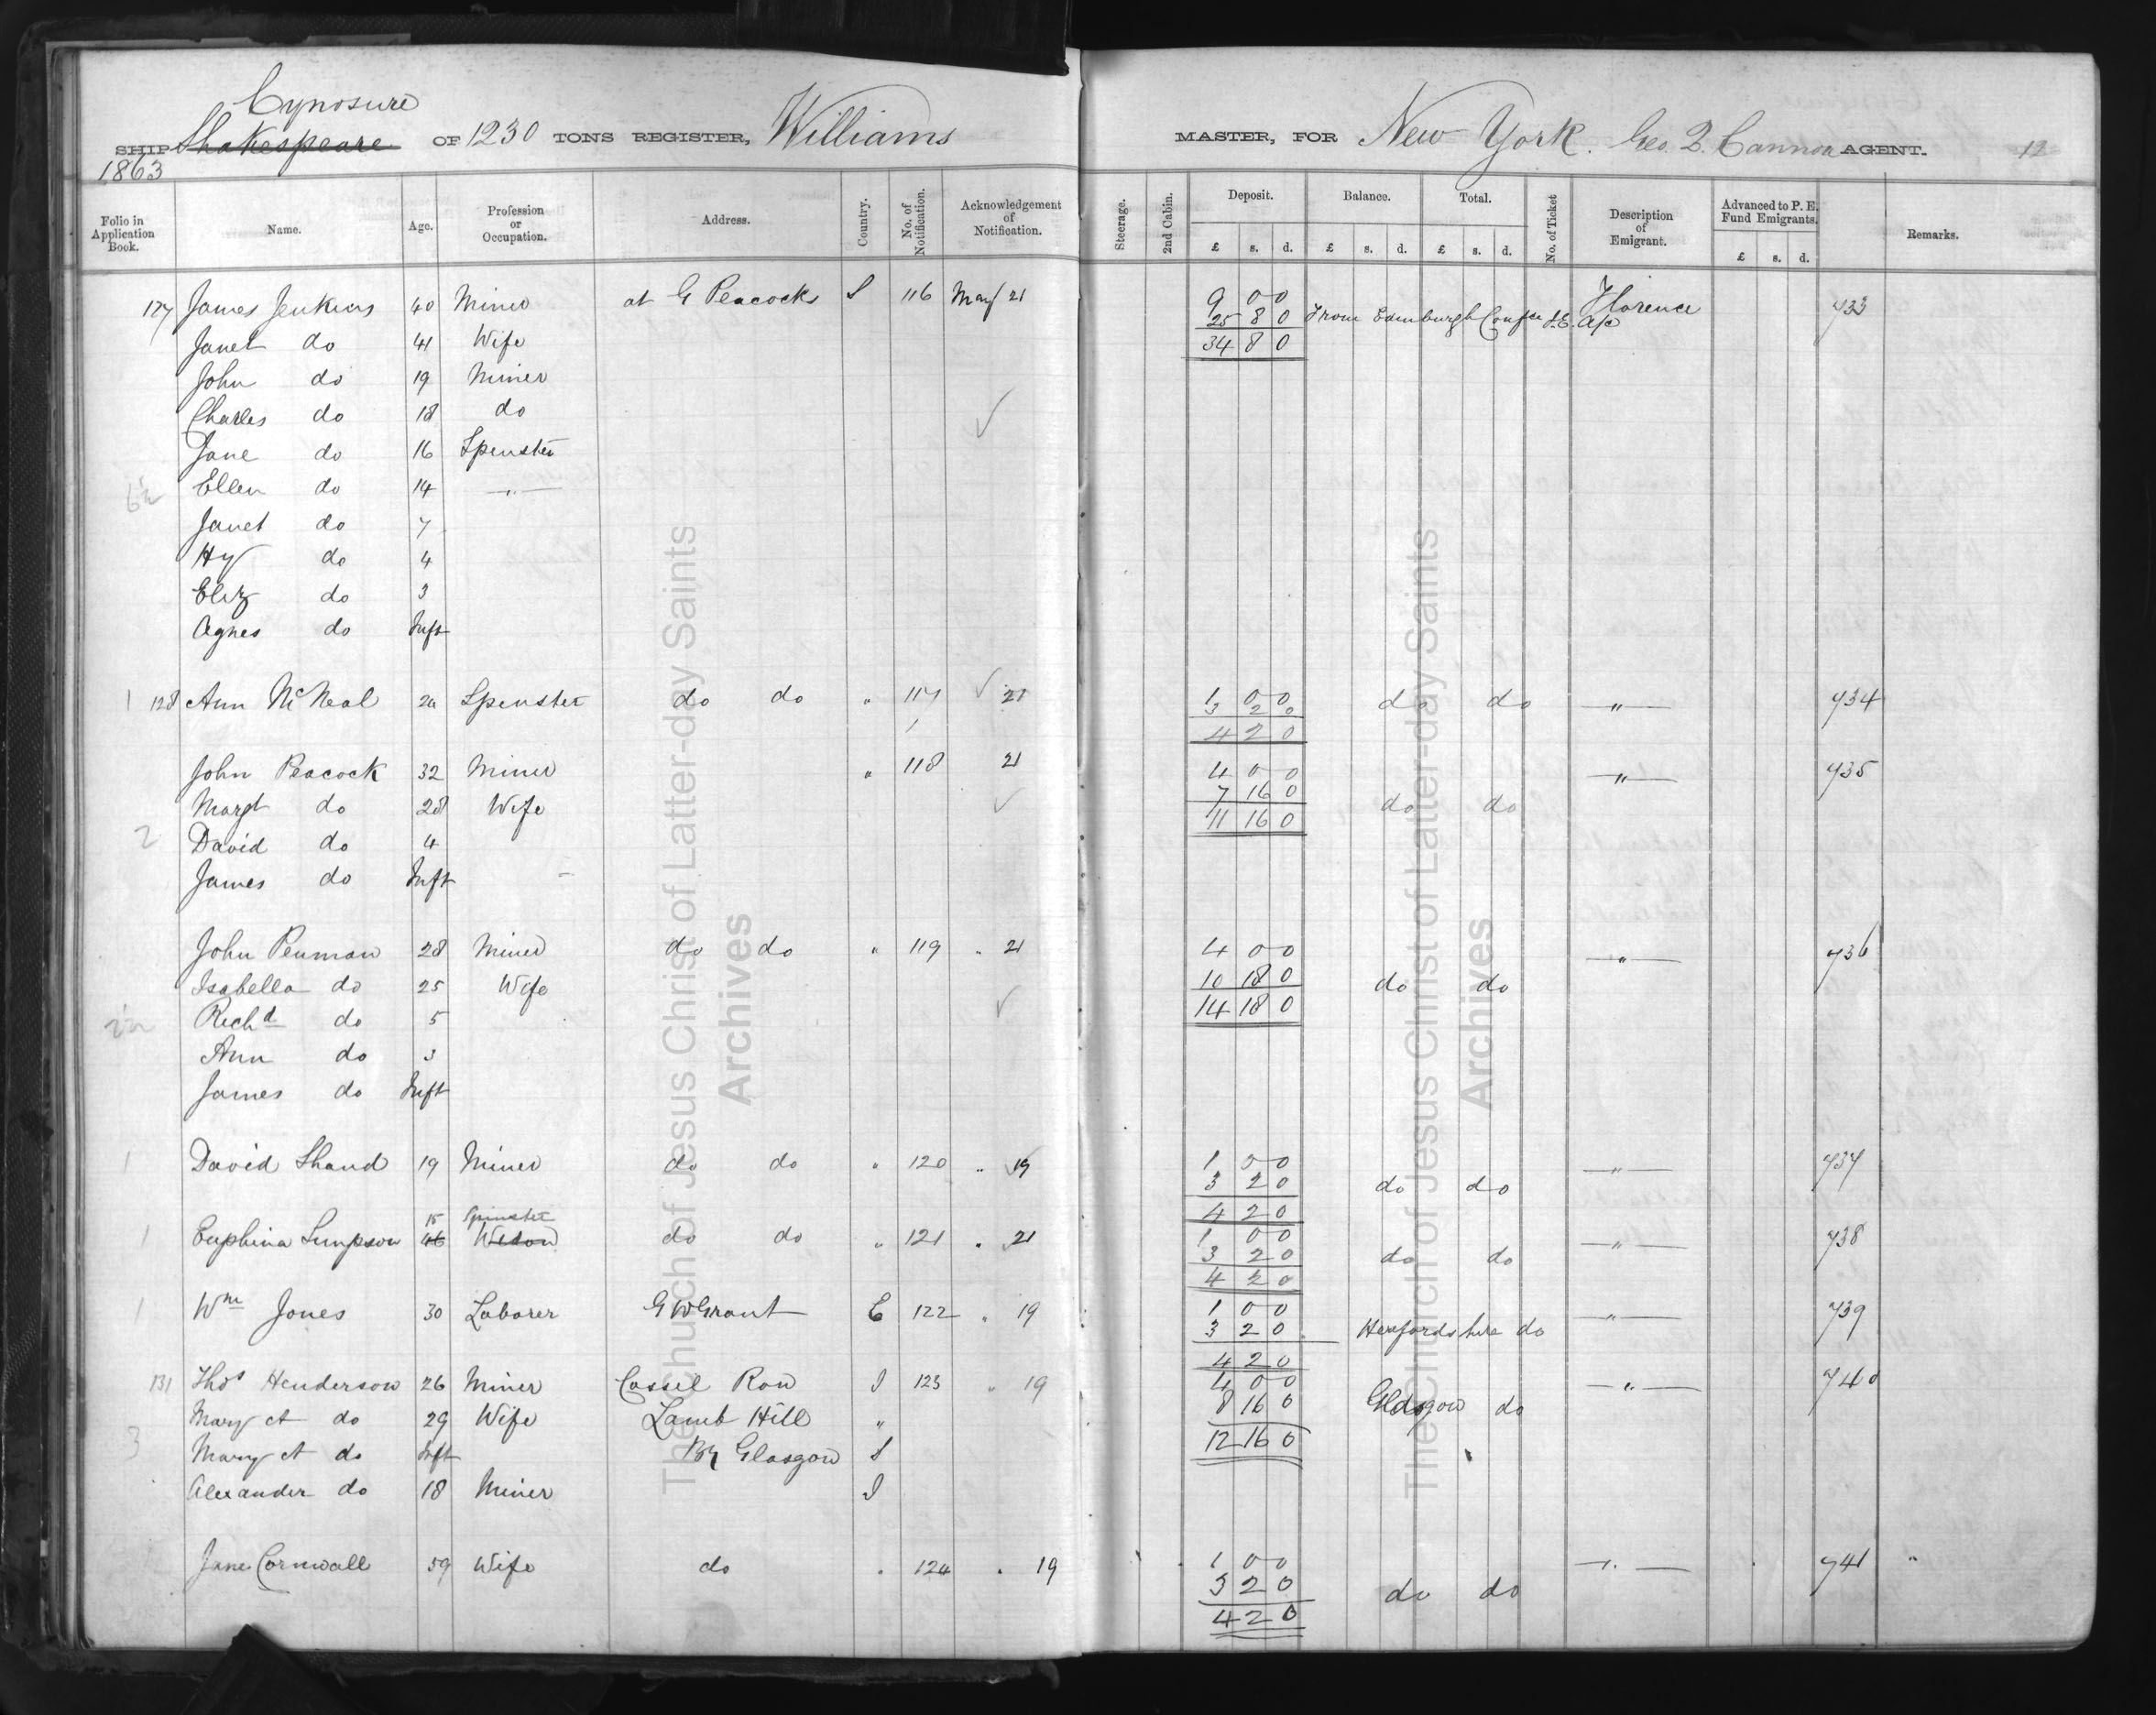 Cynosure
SHIP Shakespeare OF 1230 TONS REGISTER, Williams MASTER, FOR New York. Geo. Q. Cannon AGENT. 12
1863
Folio in Application Book. Name. Age. Profession or Occupation. Address. Country. No. of Notification. Acknowledgement of Notification. Steerage. 2nd Cabin. Deposit. Balance. Total. No. of Ticket Description of Emigrant. Advanced to P. E. Fund Emigrants. Remarks.
£ s. d. £ s. d. £ s. d. £ s. d.
127 James Jenkins 40 Miner at G Peacocks S 116 May 21 9 0 0 Florence 733
25 8 0 From Edinburgh Confce a/c
Janet do 41 Wife 34 8 0
John do 19 Miner
Charles do 18 do
Jane do 16 Spinster
6½ Ellen do 14 — " —
Janet do 7
Hy do 4
Eliz do 3
Agnes do Inft
1 128 Ann McNeal 20 Spinster do do " 117 21 1 0 0 do do — " — 734
3 2 0
4 2 0
John Peacock 32 Miner " 118 21 4 0 0 — " — 735
Margt do 28 Wife 7 16 0 do do
11 16 0
2 David do 4
James do Inft
John Penman 28 Miner do do " 119 " 21 4 0 0 — " — 736
Isabella do 25 Wife 10 18 0 do do
2½ Richd do 5 14 18 0
Ann do 3
James do Inft
1 David Shand 19 Miner do do " 120 " 19 1 0 0 — " — 737
3 2 0 do do
4 2 0
15 Spinster
1 Euphina Simpson 46 Widow do do " 121 " 21 1 0 0 — " — 738
3 2 0 do do
4 2 0
1 Wm Jones 30 Laborer G W Grant E 122 " 19 1 0 0 — " — 739
3 2 0 Herfordshire do
4 2 0
131 Thos Henderson 26 Miner Cassel Row I 123 " 19 4 0 0 — " — 740
Mary A do 29 Wife Lamb Hill " 8 16 0 Glasgow do
3 Mary A do Inft By Glasgow S 12 16 0
Alexander do 18 Miner I
Jane Cornwall 59 Wife do " 124 " 19 1 0 0 — " — 741 "
3 2 0 do do
4 2 0
The Church of Jesus Christ of Latter-day Saints
Archives
The Church of Jesus Christ of Latter-day Saints
Archives